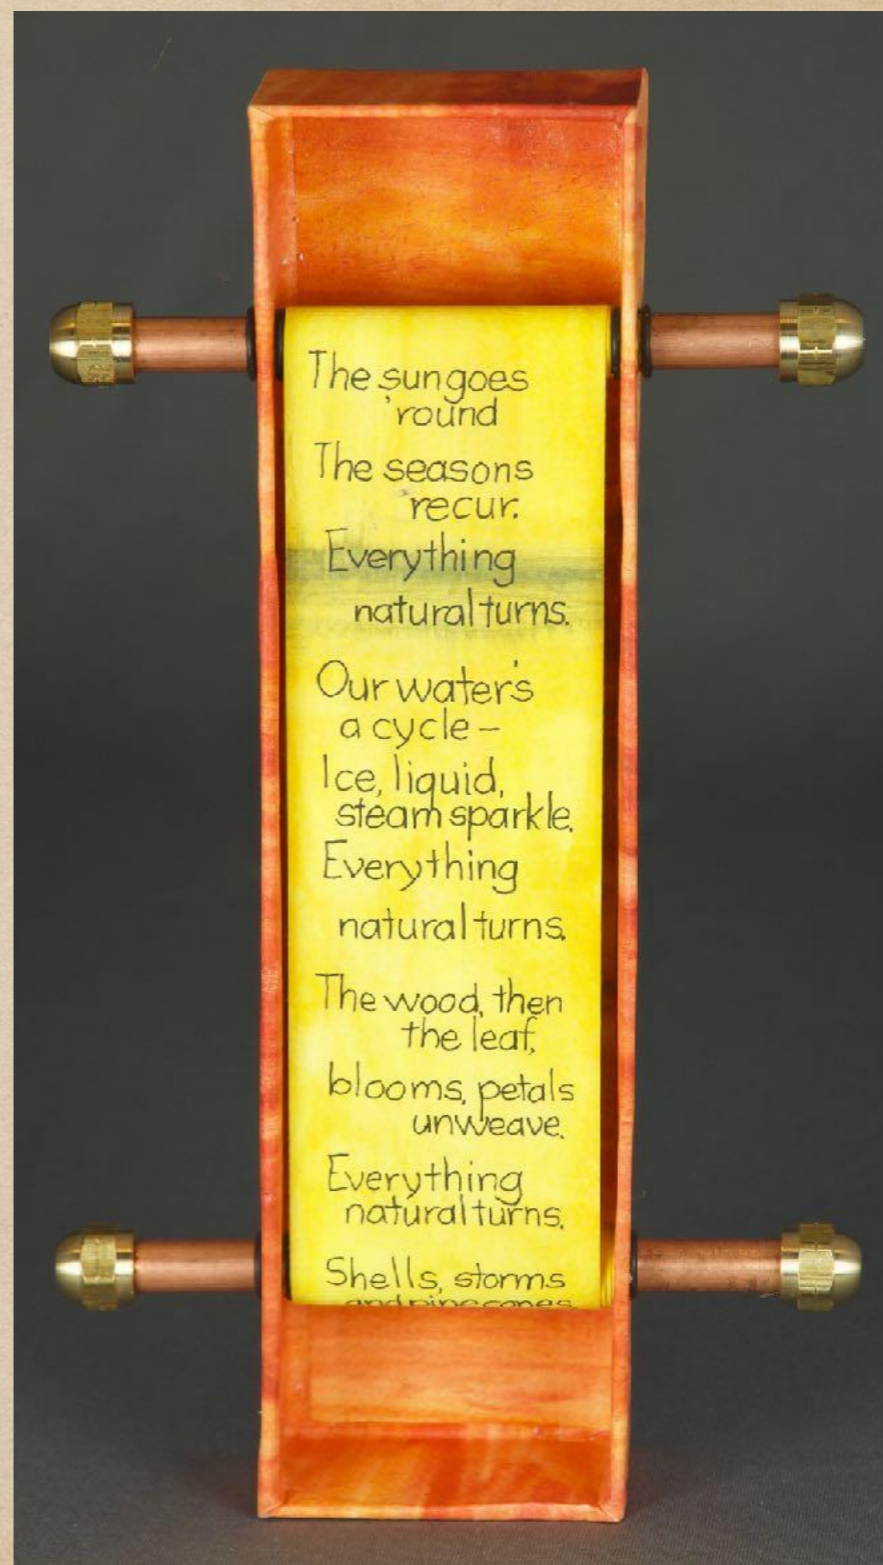 The sun goes
'round
The seasons
recur.
Everything
natural turns.
Our water's
a cycle –
Ice, liquid,
steam sparkle.
Everything
natural turns.
The wood, then
the leaf,
blooms, petals
unweave.
Everything
natural turns.
Shells, storms
and pinecones